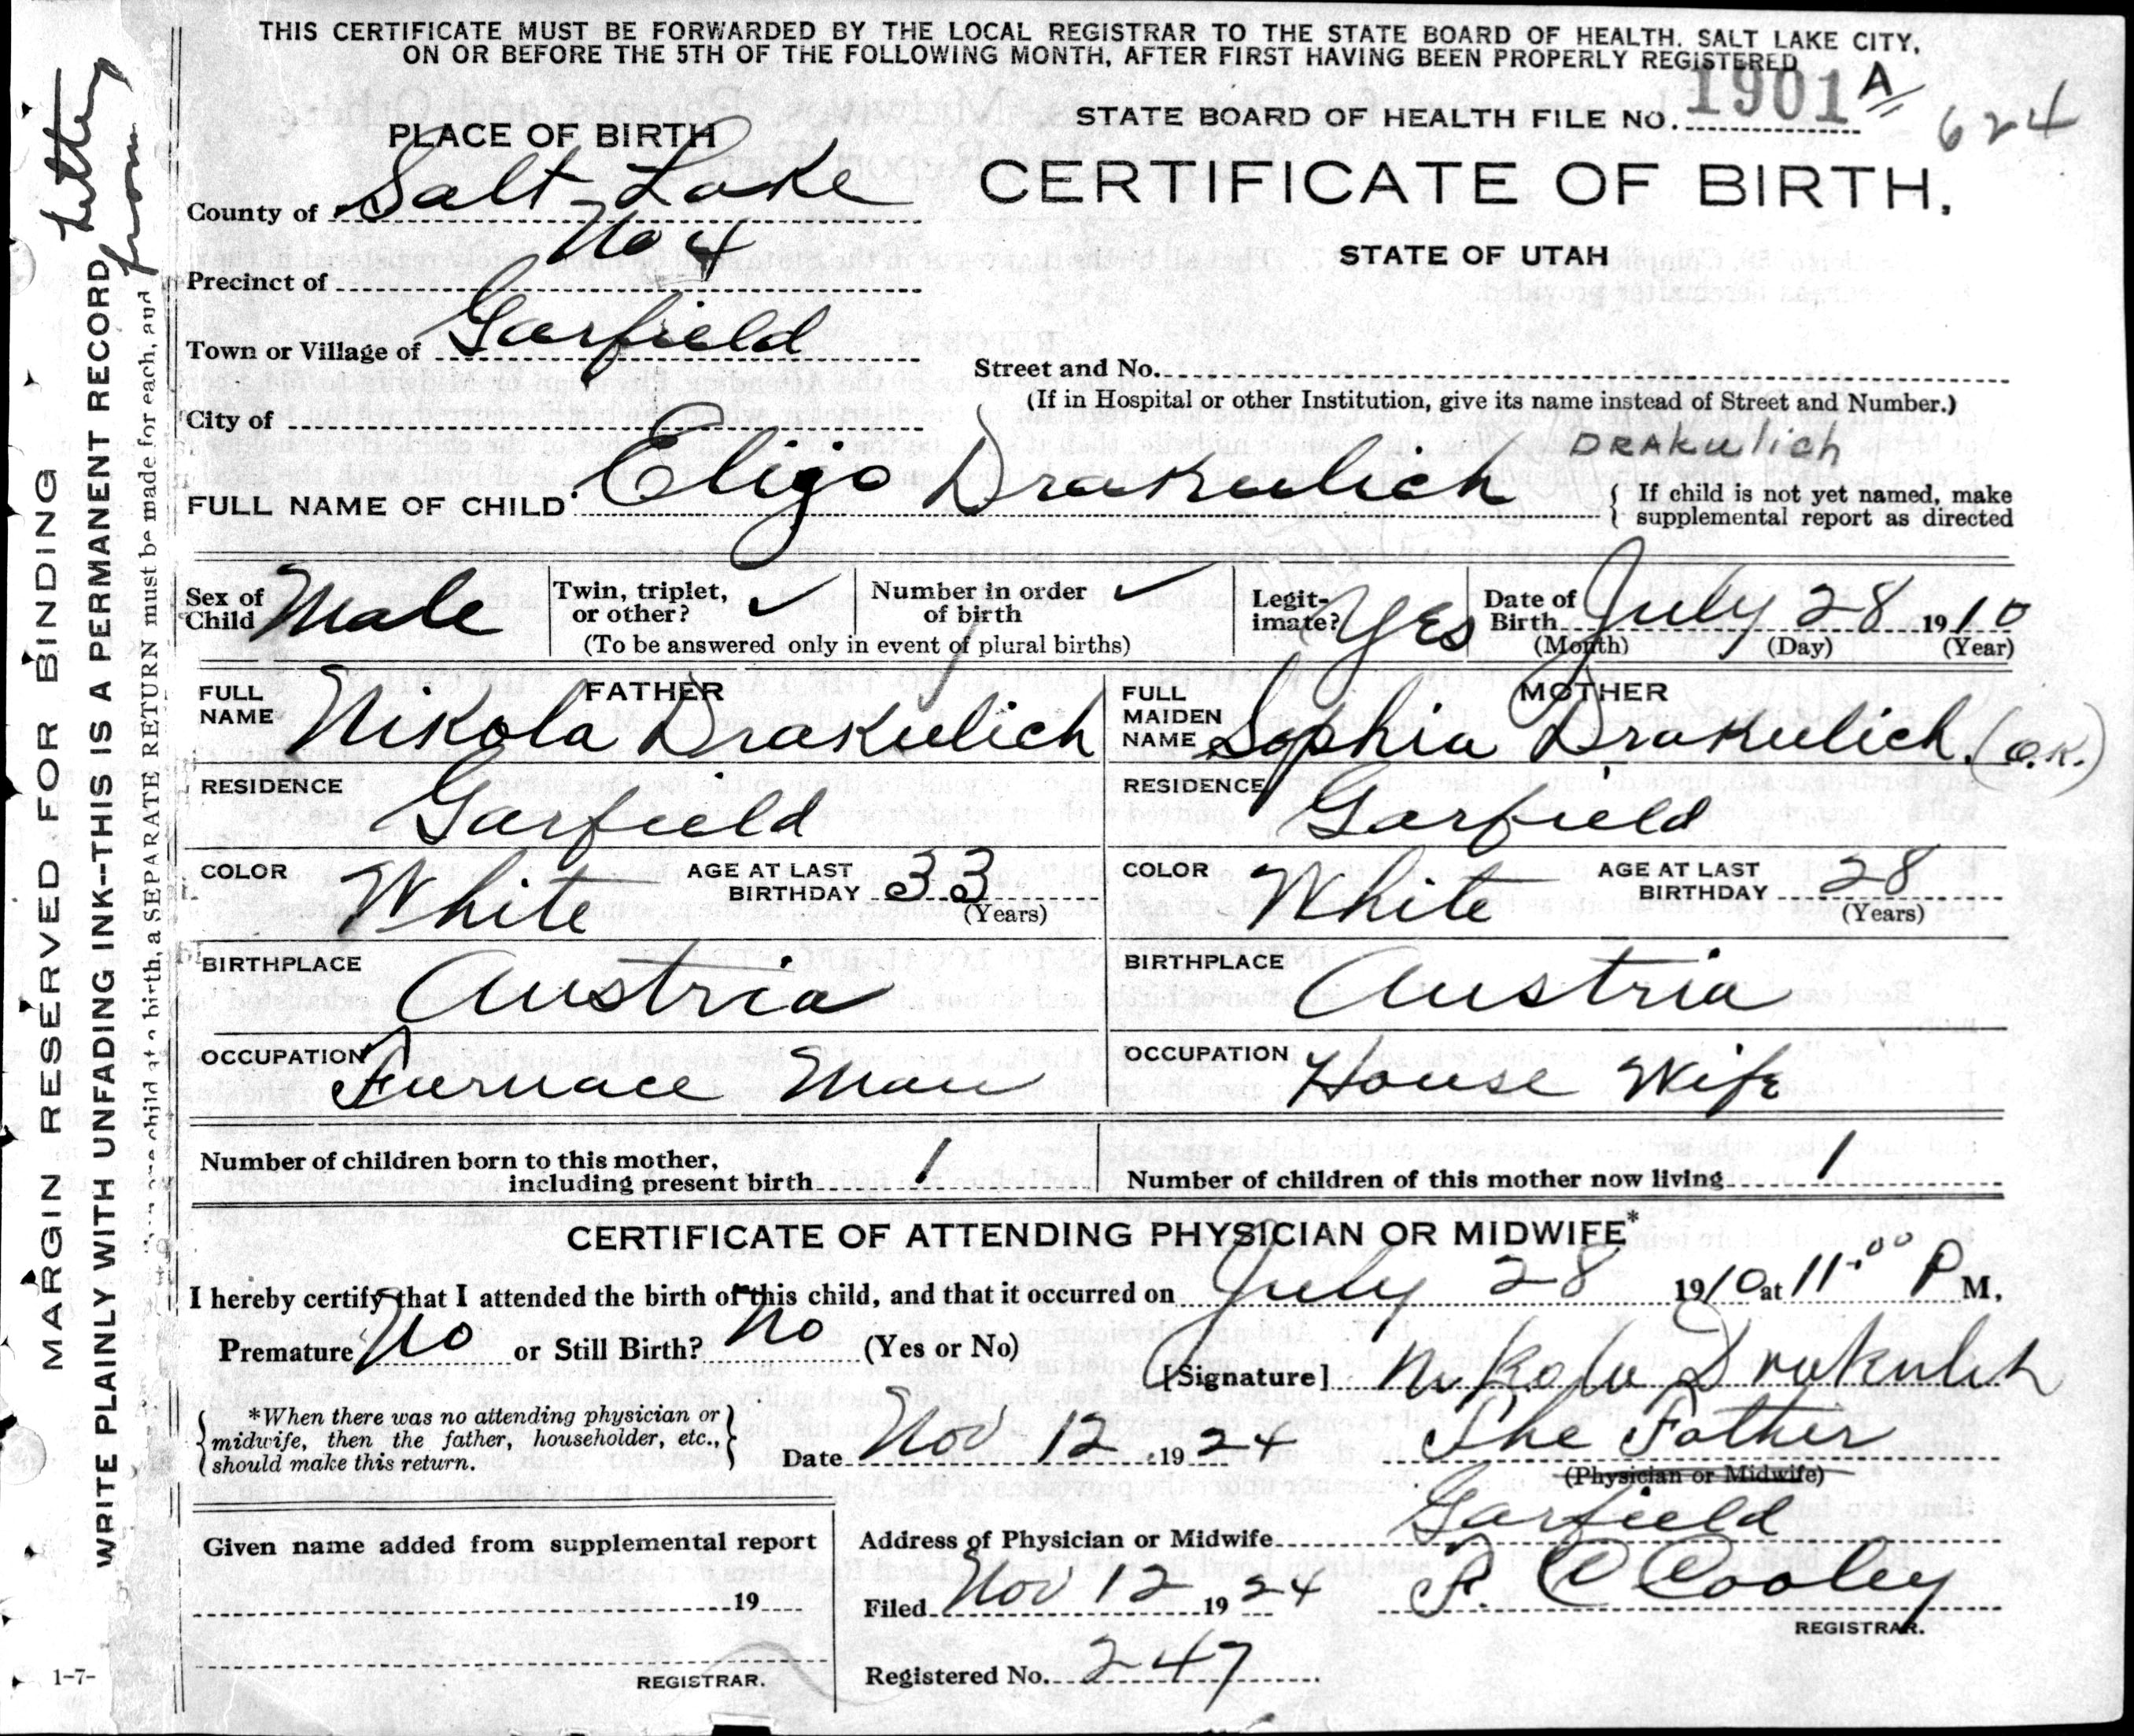 THIS CERTIFICATE MUST BE FORWARDED BY THE LOCAL REGISTRAR TO THE STATE BOARD OF HEALTH, SALT LAKE CITY,
ON OR BEFORE THE 5TH OF THE FOLLOWING MONTH, AFTER FIRST HAVING BEEN PROPERLY REGISTERED
STATE BOARD OF HEALTH FILE NO. 1901 A 624
PLACE OF BIRTH
CERTIFICATE OF BIRTH.
STATE OF UTAH
County of Salt Lake
Precinct of No 4
Town or Village of Garfield
Street and No.
(If in Hospital or other Institution, give its name instead of Street and Number.)
City of
DRAKulich
FULL NAME OF CHILD Eligo Drakulich
{ If child is not yet named, make
{ supplemental report as directed
Sex of Child Male
Twin, triplet, or other? ✓
Number in order of birth ✓
(To be answered only in event of plural births)
Legitimate? Yes
Date of Birth July 28 1910
(Month) (Day) (Year)
FATHER
FULL NAME Nikola Drakulich
RESIDENCE Garfield
COLOR White AGE AT LAST BIRTHDAY 33
(Years)
BIRTHPLACE Austria
OCCUPATION Furnace Man
MOTHER
FULL MAIDEN NAME Sophia Drakulich. (O.K.)
RESIDENCE Garfield
COLOR White AGE AT LAST BIRTHDAY 28
(Years)
BIRTHPLACE Austria
OCCUPATION House Wife
Number of children born to this mother,
including present birth 1
Number of children of this mother now living 1
CERTIFICATE OF ATTENDING PHYSICIAN OR MIDWIFE*
I hereby certify that I attended the birth of this child, and that it occurred on July 28 1910 at 11:00 P M.
Premature No or Still Birth? No (Yes or No)
[Signature] Nikola Drakulich
*When there was no attending physician or
midwife, then the father, householder, etc.,
should make this return.
Date Nov 12 1924
The Father
(Physician or Midwife)
Given name added from supplemental report
19
REGISTRAR.
Address of Physician or Midwife Garfield
Filed Nov 12 1924
P. C Cooley
REGISTRAR.
Registered No. 247
MARGIN RESERVED FOR BINDING
WRITE PLAINLY WITH UNFADING INK--THIS IS A PERMANENT RECORD
child at a birth, a SEPARATE RETURN must be made for each, and
from
1-7-